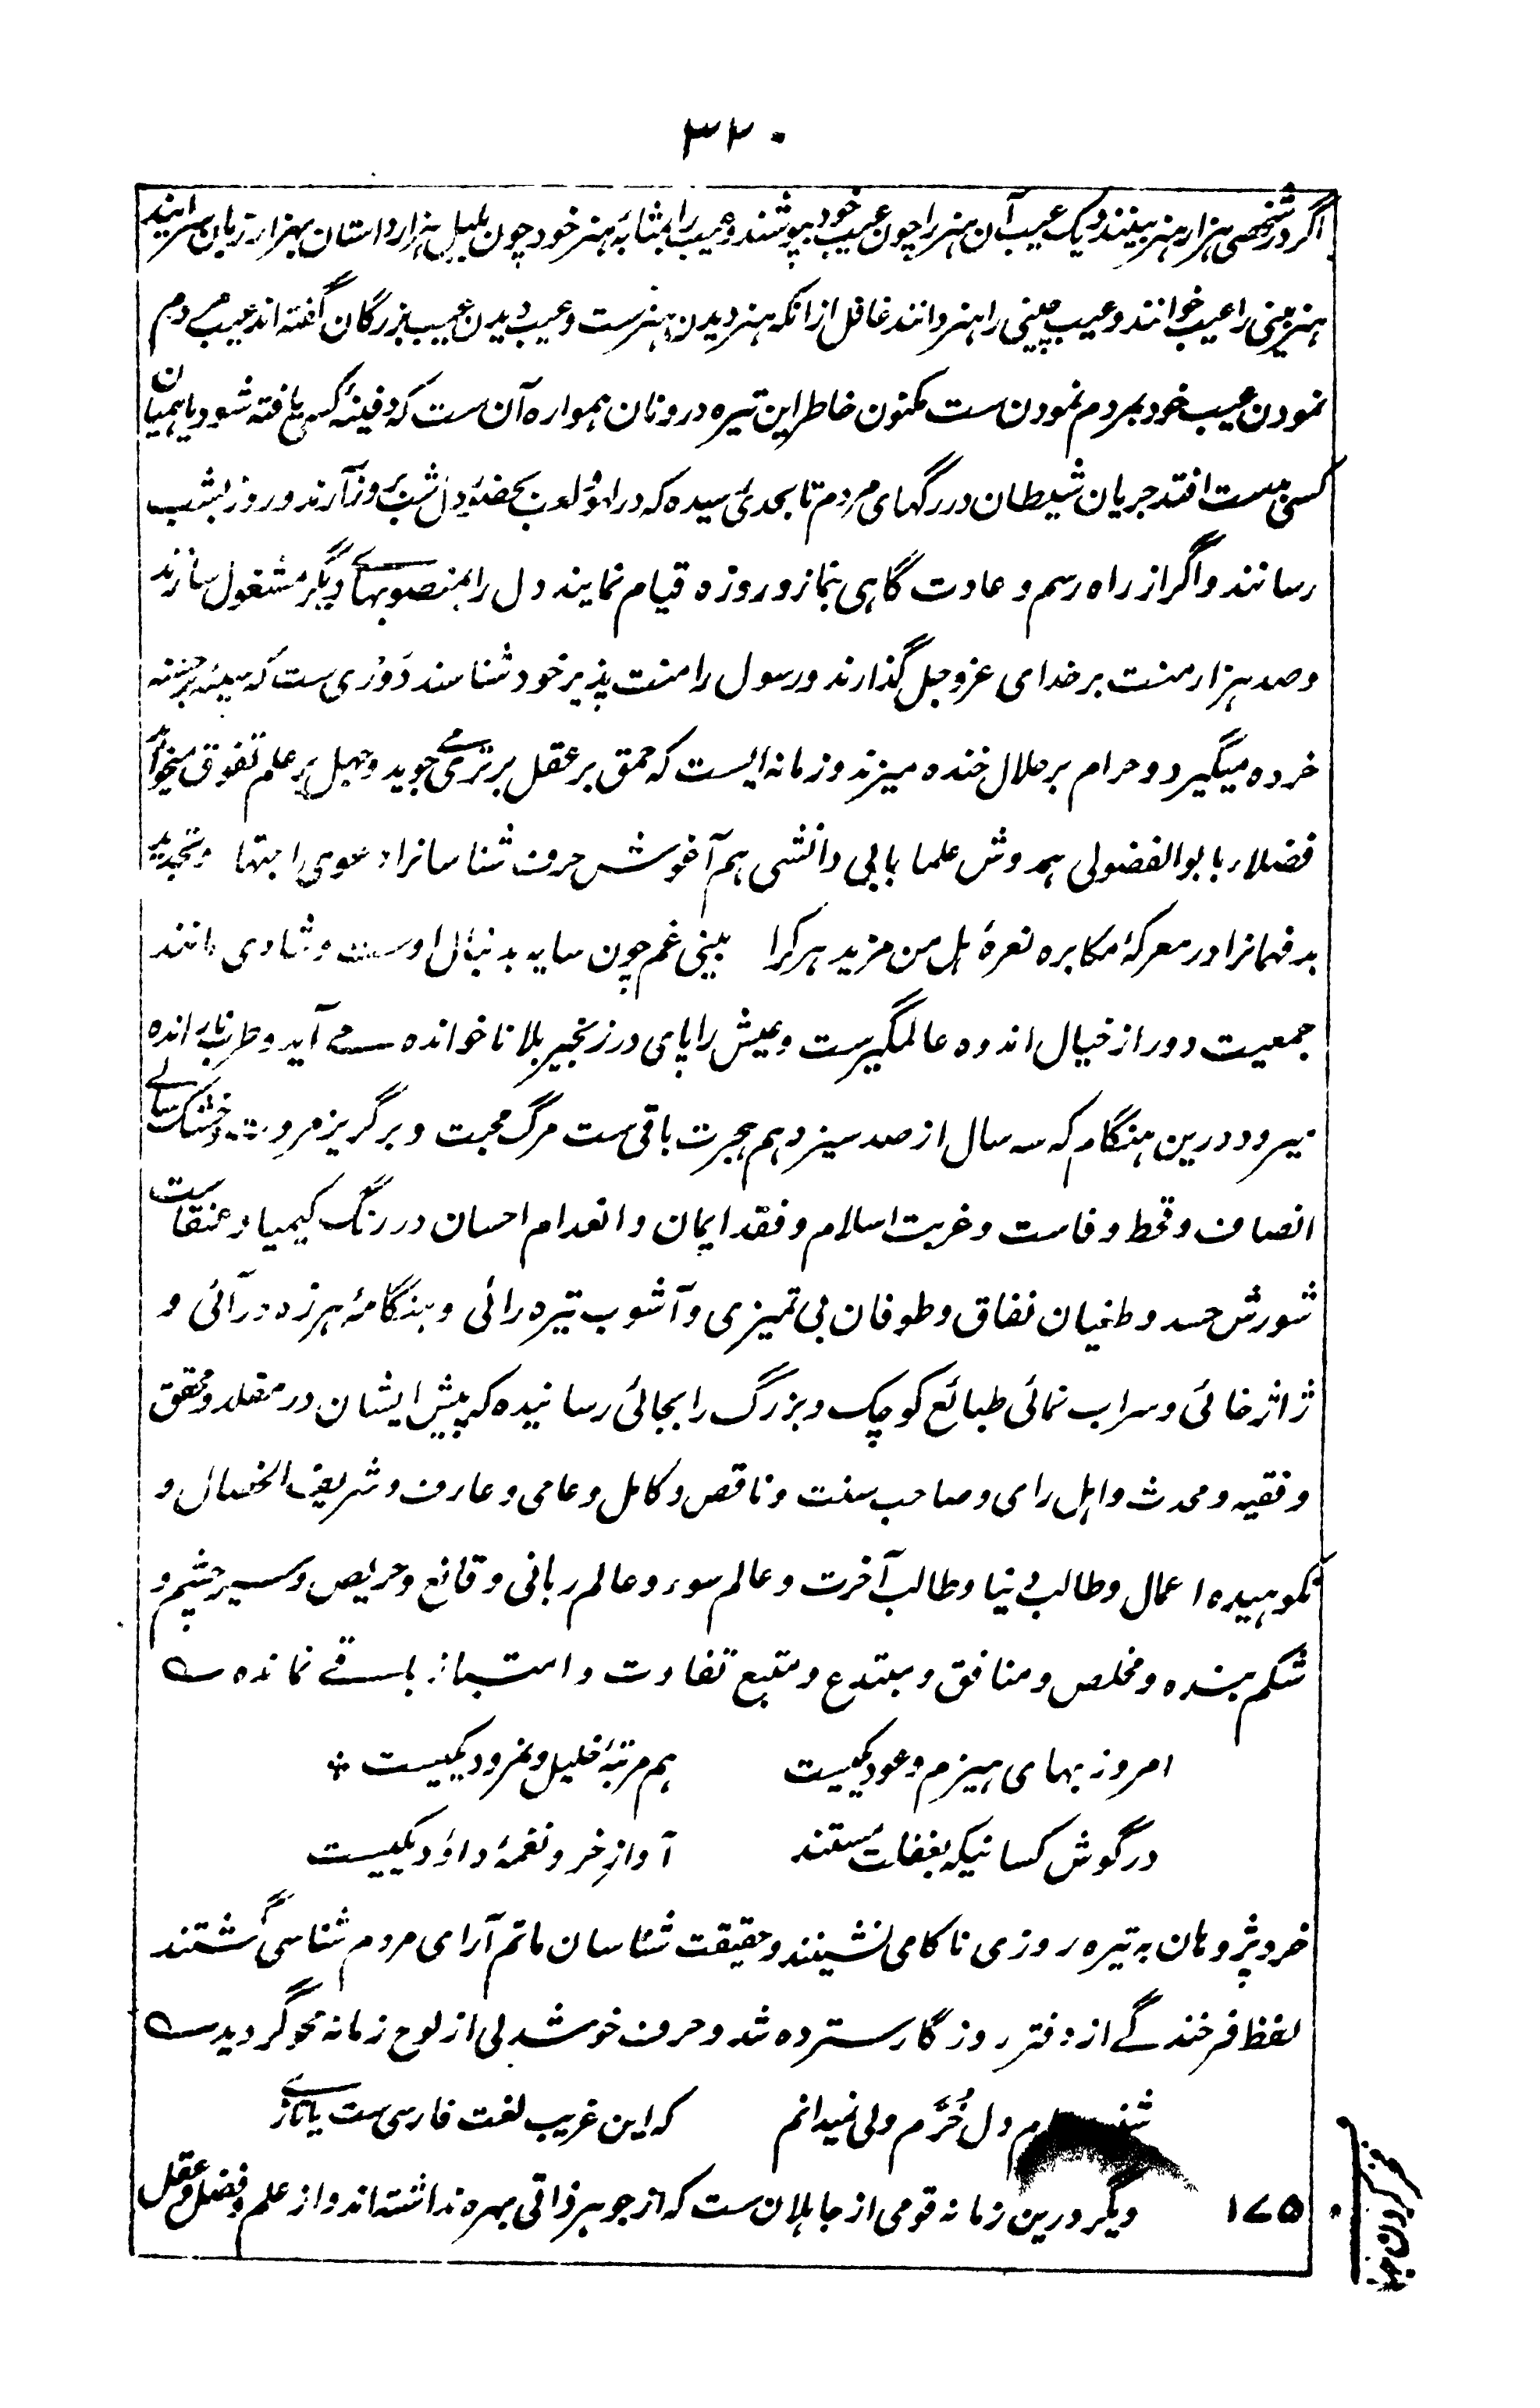 ۳۲۰
اگر در شخصی هزار هنر بینند و یک عیب آن هنر را چون عیب خود بپوشند و عیب را بمثابهٔ هنر خود چون بلبل هزار داستان بهزار زبان سرایند
هنر بینی را عیب خوانند و عیب بینی را هنر دانند غافل ازانکه هنر دیدن هنرست و عیب دیدن عیب بزرگان گفته اند عیب مردم
نمودن عیب خود بمردم نمودن ست مکنون خاطر این تیره درونان همواره آن ست که دفینهٔ کسی یافته شود یا همیان
کسی بدست افتد جریان شیطان در رگهای مردم تا بحدی رسیده که در لهو و لعب بحضور دل شب بروز آرند و روز بشب
رسانند و اگر از راه رسم و عادت گاهی بنماز و روزه قیام نمایند دل را بمنصوبهای دیگر مشغول سازند
و صد هزار منت بر خدای عز و جل گذارند و رسول را منت پذیر خود شناسند دَوری ست که سیئه بر حسنه
خرده میگیرد و حرام بر حلال خنده میزند و زمانه ایست که حمق بر عقل برتری می جوید و جهل بر علم تفوق میخواهد
فضلا را با بوالفضولی همدوش علما با بی دانشی هم آغوش حرف شناسانرا دعوی اجتهاد و تجدید
بدفهمانرا در معرکهٔ مکابره نعرهٔ هل من مزید هر کرا بینی غم چون سایه بدنبال اوست و شادی مانند
جمعیت دور از خیال اندوه عالمگیرست و عیش را پای در زنجیر بلا ناخوانده می آید و طرب نارانده
میرود درین هنگام که سه سال از صد سیزدهم هجرت باقی ست مرگ محبت و برگریز مروت و خشک سالی
انصاف و قحط وفاست و غربت اسلام و فقد ایمان و انعدام احسان در رنگ کیمیا و عنقاست
شورش حسد و طغیان نفاق و طوفان بی تمیزی و آشوب تیره رائی و هنگامهٔ هرزه درآئی و
ژاژخائی و سراب نمائی طبائع کوچک و بزرگ را بجائی رسانیده که پیش ایشان در مقلد و محقق
و فقیه و محدث و اهل رای و صاحب سنت و ناقص و کامل و عامی و عارف و شریف الخصال و
نکوهیده اعمال و طالب دنیا و طالب آخرت و عالم سوء و عالم ربانی و قانع و حریص و سیرچشم و
شکم بنده و مخلص و منافق و مبتدع و متبع تفاوت و امتیاز باقی نمانده ے
امروز بهای هیزم و عود یکیست هم مرتبهٔ خلیل و نمرود یکیست *
در گوش کسانیکه بغفلت مستند آوازِ خر و نغمهٔ داؤد یکیست
خرد پژوهان به تیره روزی ناکامی نشینند و حقیقت شناسان ماتم آرای مردم شناسی گشتند
لفظ فرخندگی از دفتر روزگار سترده شد و حرف خوشدلی از لوح زمانه محو گردید ے
دل خُرّم ولی نمیدانم که این غریب لغت فارسی ست یا تازی
۱۷۵ دیگر درین زمانه قومی از جاهلان ست که از جوهر ذاتی بهره نداشته اند و از علم و فضل و عقل